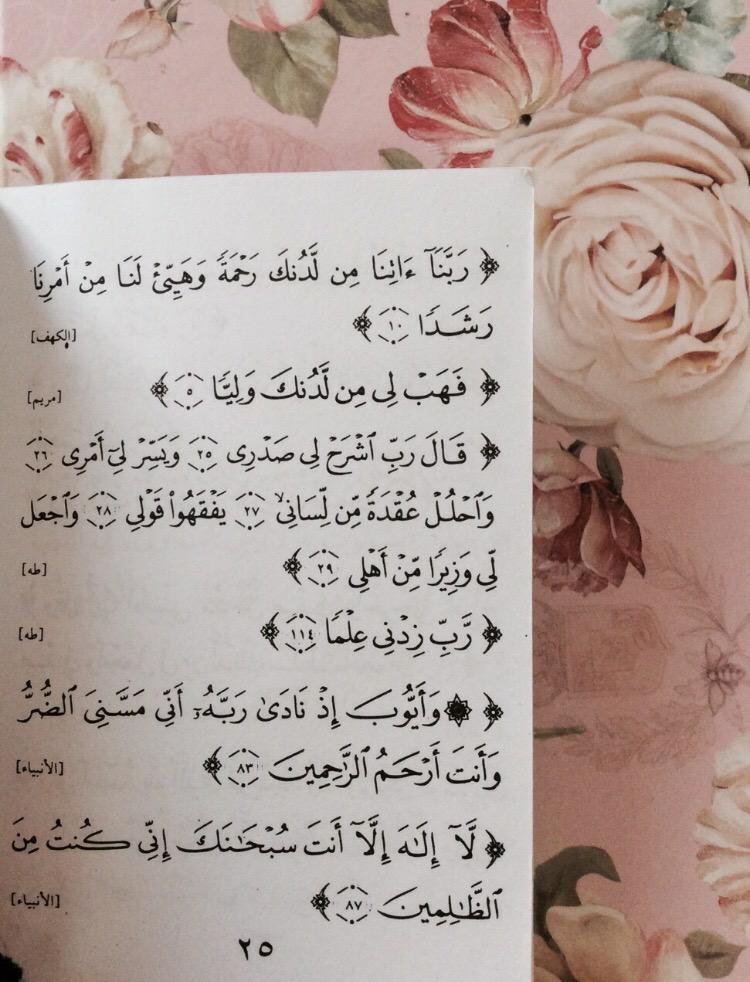 ﴿ رَبَّنَآ ءَاتِنَا مِن لَّدُنكَ رَحْمَةً وَهَيِّئْ لَنَا مِنْ أَمْرِنَا
رَشَدًا ١٠ ﴾ [الكهف]
﴿ فَهَبْ لِى مِن لَّدُنكَ وَلِيًّا ٥ ﴾ [مريم]
﴿ قَالَ رَبِّ ٱشْرَحْ لِى صَدْرِى ٢٥ وَيَسِّرْ لِىٓ أَمْرِى ٢٦
وَٱحْلُلْ عُقْدَةً مِّن لِّسَانِى ٢٧ يَفْقَهُوا۟ قَوْلِى ٢٨ وَٱجْعَل
لِّى وَزِيرًا مِّنْ أَهْلِى ٢٩ ﴾ [طه]
﴿ رَّبِّ زِدْنِى عِلْمًا ١١٤ ﴾ [طه]
﴿ ۞ وَأَيُّوبَ إِذْ نَادَىٰ رَبَّهُۥٓ أَنِّى مَسَّنِىَ ٱلضُّرُّ
وَأَنتَ أَرْحَمُ ٱلرَّٰحِمِينَ ٨٣ ﴾ [الأنبياء]
﴿ لَّآ إِلَٰهَ إِلَّآ أَنتَ سُبْحَٰنَكَ إِنِّى كُنتُ مِنَ
ٱلظَّٰلِمِينَ ٨٧ ﴾ [الأنبياء]
٢٥